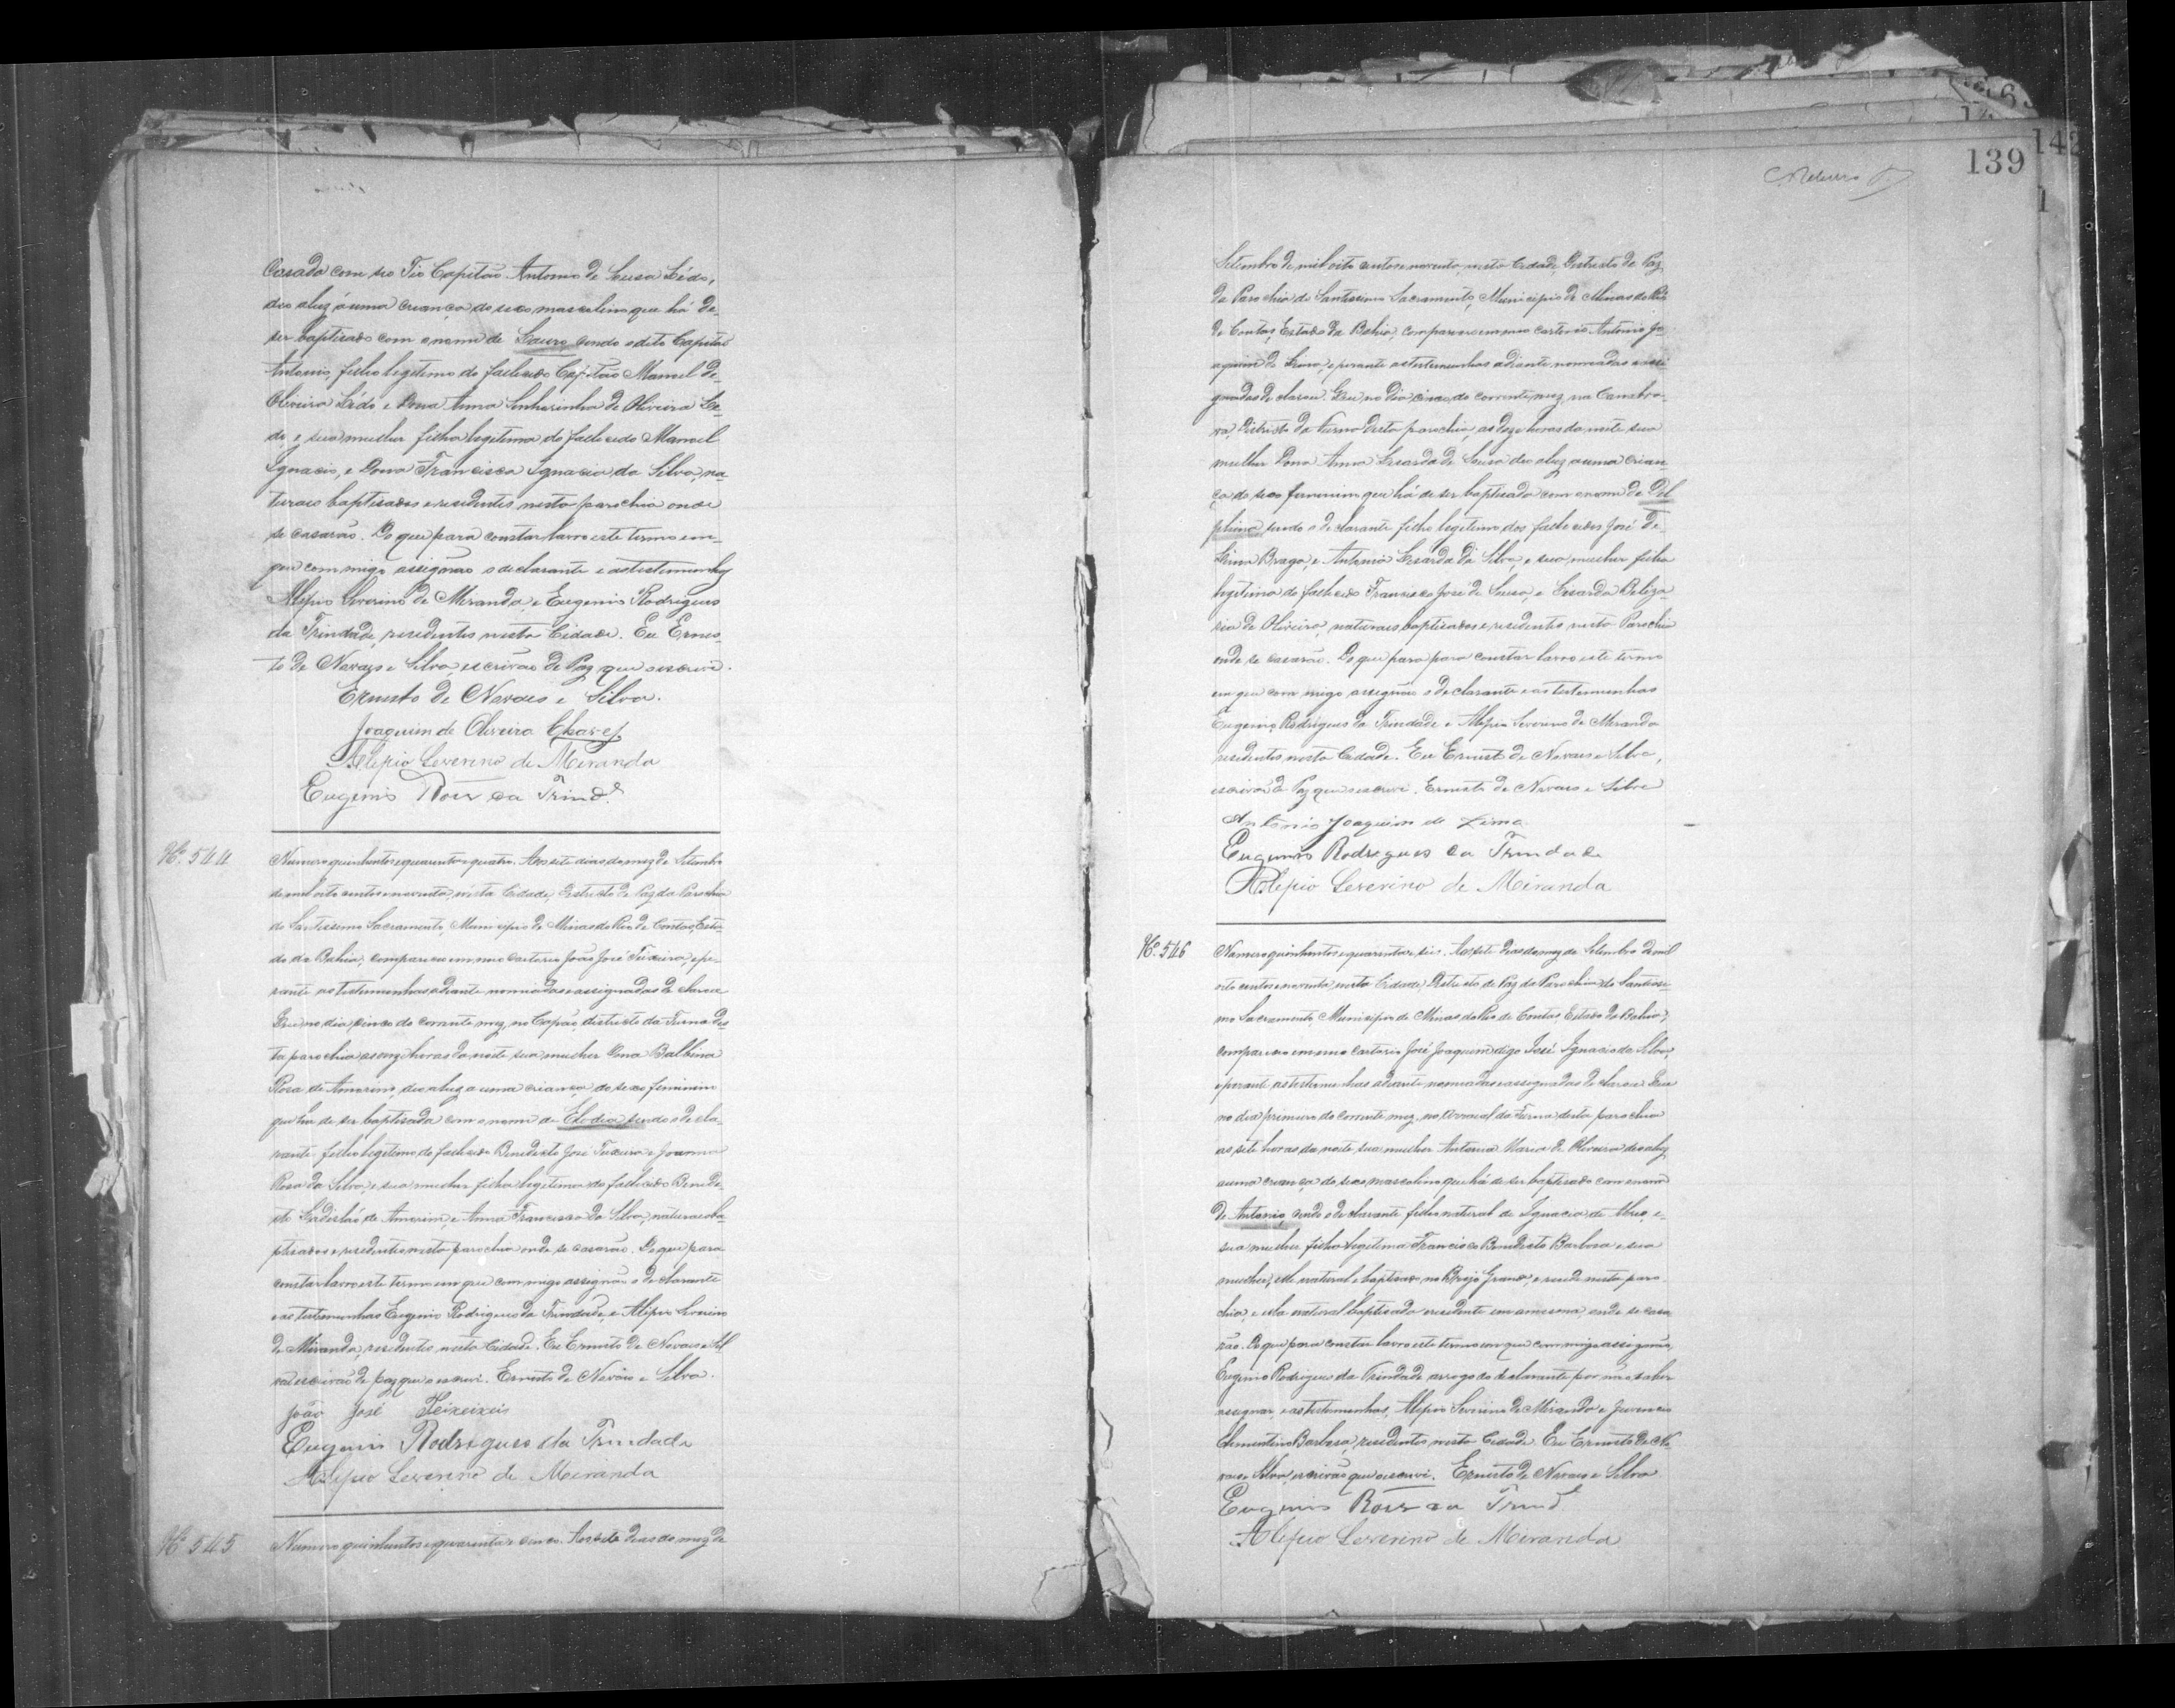 Casada com seo Tio Capitão Antonio de Sousa Lédo,
deo aluz á uma criança do sexo masculino que há de
ser baptisado com o nome de Lauro sendo o dito Capitão
Antonio, filho legitimo do fallecido Capitão Manoel de
Oliveira Lédo e Dona Anna Senhorinha de Oliveira Le-
do e sua mulher filha legitima do fallecido Manoel
Ignacio, e Dona Francisca Ignacia da Silva, na-
turaes baptisados e residentes nesta parochia onde
se casarão. Do que para constar lavro este termo em-
que com migo assignão o declarante e as testemunhas
Alipio Severino de Miranda, e Eugenio Rodrigues
da Trindade, residentes nesta Cidade. Eu Ernes-
to de Novaes e Silva, escrivão de Paz que o escrevi.
Ernesto de Novaes e Silva.
Joaquim de Oliveira Chaves
Alepio Severino de Miranda
Eugenio Roiz da Trind.e
Nº 544
Numero quinhentos e quarenta e quatro. Aos sete dias do mez de Setembro
de mil oito centos e noventa, nesta Cidade, Districto de Paz da Parochia
do Santissimo Sacramento, Municipio de Minas do Rio de Contas, Esta-
do da Bahia, compareceu em meo Cartorio João José Teixeira, e pe-
rante as testemunhas adiante nomiadas e assignadas declarou
Que no dia cinco do corrente mez, no Capão, districto da Furna des-
ta parochia as onze horas da noite sua mulher Dona Balbina
Rosa de Amorim, deo aluz a uma criança do sexo feminino
que ha de ser baptisada com o nome de Elodia sendo o decla-
rante filho legitimo do fallecido Benedicto José Teixeira e Joanna
Rosa da Silva, e sua mulher filha legitima do fallecido Benedi-
cto de Amorim, e Anna Francisca da Silva, naturaes ba-
ptisados e residentes nesta parochia onde se casarão. Do que para
constar lavro este termo em que com migo assignão o declarante
e as testemunhas Eugenio Rodrigues da Trindade, e Alipio Severino
de Miranda, residentes nesta Cidade. Eu Ernesto de Novaes e Sil
va escrivão de paz que o escrevi. Ernesto de Novaes e Silva.
João José Teixeixeis
Eugenio Rodrigues da Trindade
Alepio Severino de Miranda
Nº 545
Numero quinhentos e quarenta e cinco. Aos sete dias do mez de
139
Setembro de mil oito centos e noventa, nesta Cidade, Districto de Paz
da Parochia do Santissimo Sacramento, Municipio de Minas do Rio
de Contas, Estado da Bahia, compareceu em meo cartorio Antonio Jo-
aquim de Lima, e perante as testemunhas adiante nomeadas e assi
gnadas declarou. Que no dia cinco do corrente mez, na Canabra-
va, Districto da Furna desta parochia, as doze horas da noite sua
mulher Dona Anna Lisarda de Sousa deo aluz a uma crian-
ça do sexo feminino que há de ser baptisada com o nome de Del
phina, sendo o declarante filho legitimo dos fallecidos José de
Lima Braga, e Antonia Lisarda da Silva, e sua mulher filha
legitima do fallecido Francisco José de Sousa, e Lisarda Beliza-
ria de Oliveira, naturaes, baptisados e residentes nesta Parochia
onde se casarão. Do que para para constar lavro este termo
em que com migo assignão o declarante e as testemunhas
Eugenio Rodrigues da Trindade e Alipio Severino de Miranda
residentes nesta Cidade. Eu Ernesto de Novaes e Silva,
escrivão de Paz que o escrevi. Ernesto de Novaes e Silva
Antonio Joaquim de Lima
Eugenio Rodrigues da Trindade
Alepio Severino de Miranda
Nº 546
Numero quinhentos e quarenta e seis. Aos sete dias do mez de Setembro de mil
oito centos e noventa, nesta Cidade, Districto de Paz da Parochia do Santissi-
mo Sacramento Municipio de Minas do Rio de Contas, Estado da Bahia,
compareceu em meo cartorio José Joaquim, digo José Ignacio da Silva,
e perante as testemunhas adiante nomeadas e assignadas declarou Que
no dia primeiro do corrente mez, no Arraial da Furna desta parochia
as sete horas da noite, sua mulher Antonia Maria de Oliveira deo aluz
a uma criança do sexo masculino que há de ser baptisado com o nome
de Antonio, sendo o declarante filho natural de Ignacia de Abreo, e
sua mulher filha legitima Francisco Benedicto Barbosa e sua
mulher, elle natural e baptisado no Brejo Grande, e reside nesta paro-
chia, e ella natural baptisada e residente em a mesma, onde se casa
rão. Do que para constar lavro este termo em que com migo assignão,
Eugenio Rodrigues da Trindade arrogo do declarante por não saber
assignar, e as testemunhas, Alipio Severino de Miranda e Juvencio
Clementino Barbosa, residentes nesta Cidade. Eu Ernesto de No
vaes e Silva, escrivão que o escrevi. Ernesto de Novaes e Silva
Eugenio Roiz da Trind.e
Alepio Severino de Miranda